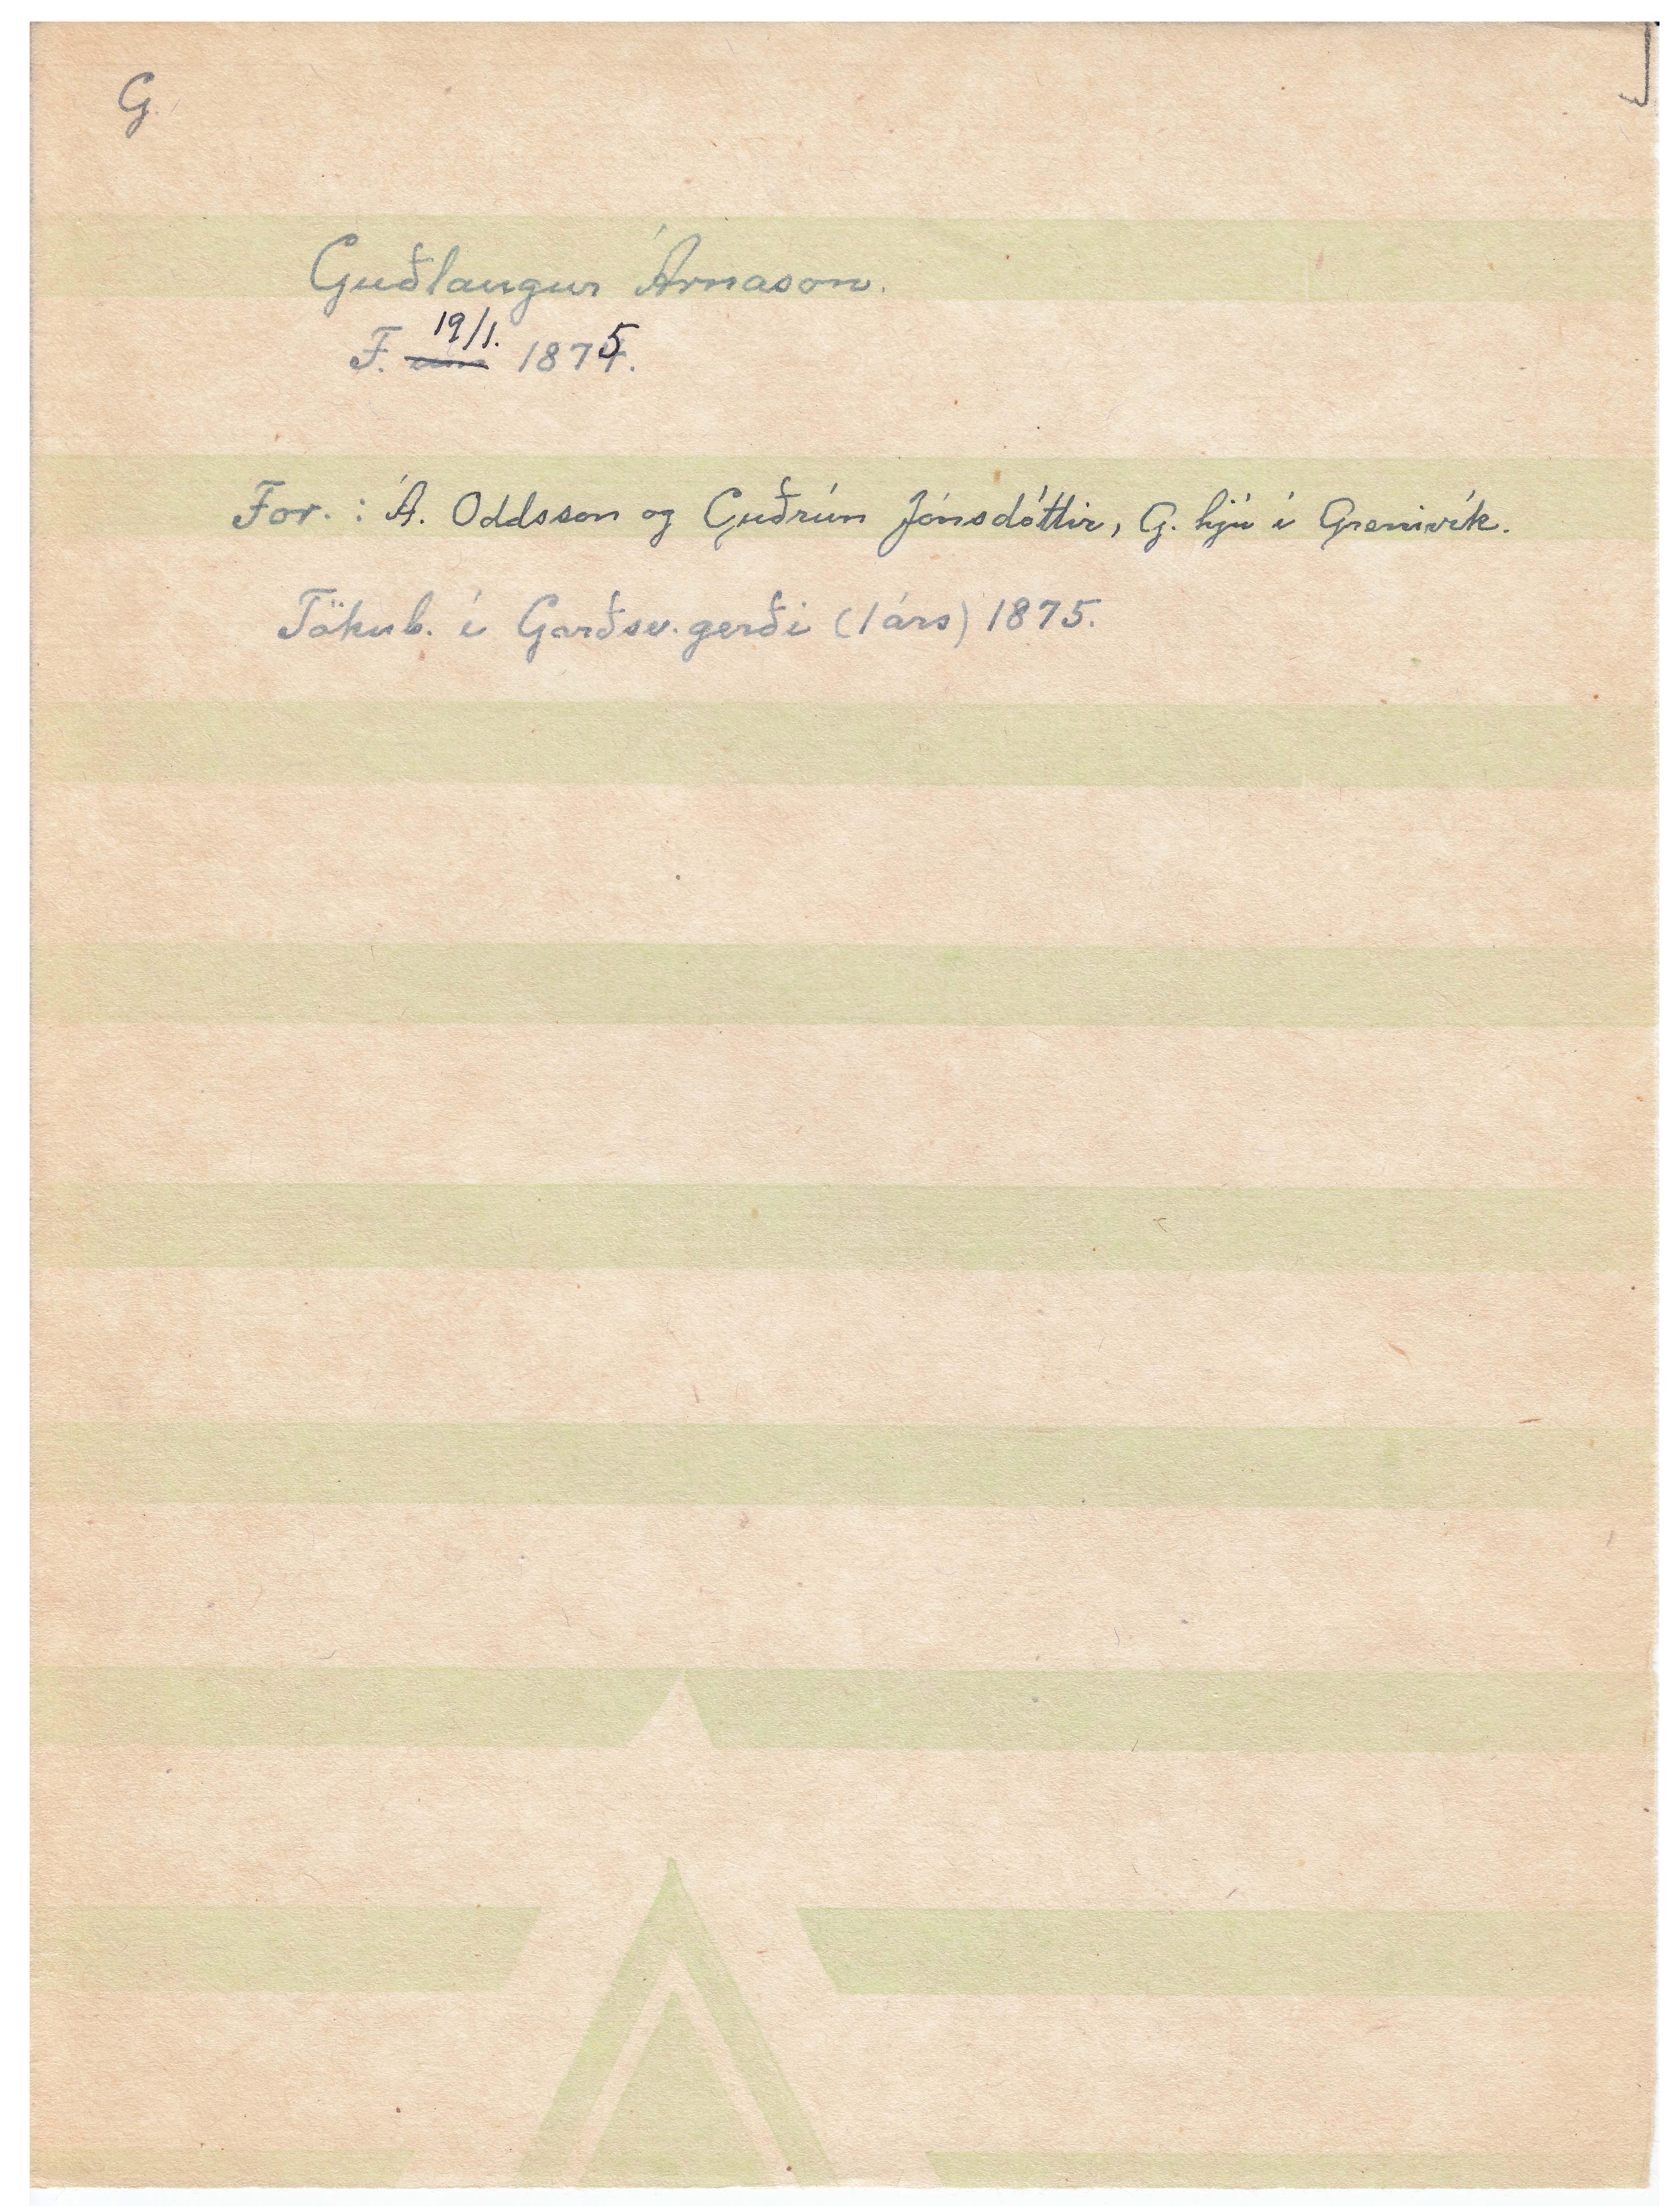 G.
Guðlaugur Árnason.
F. 19/1. 1875.
For.: Á. Oddsson og Guðrún Jónsdóttir, G. hjú í Grenivík.
Tökub. í Garðsv.gerði (1 árs) 1875.